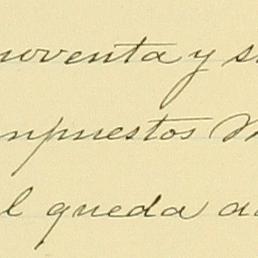 noventa y s
mpuestos M
l queda a